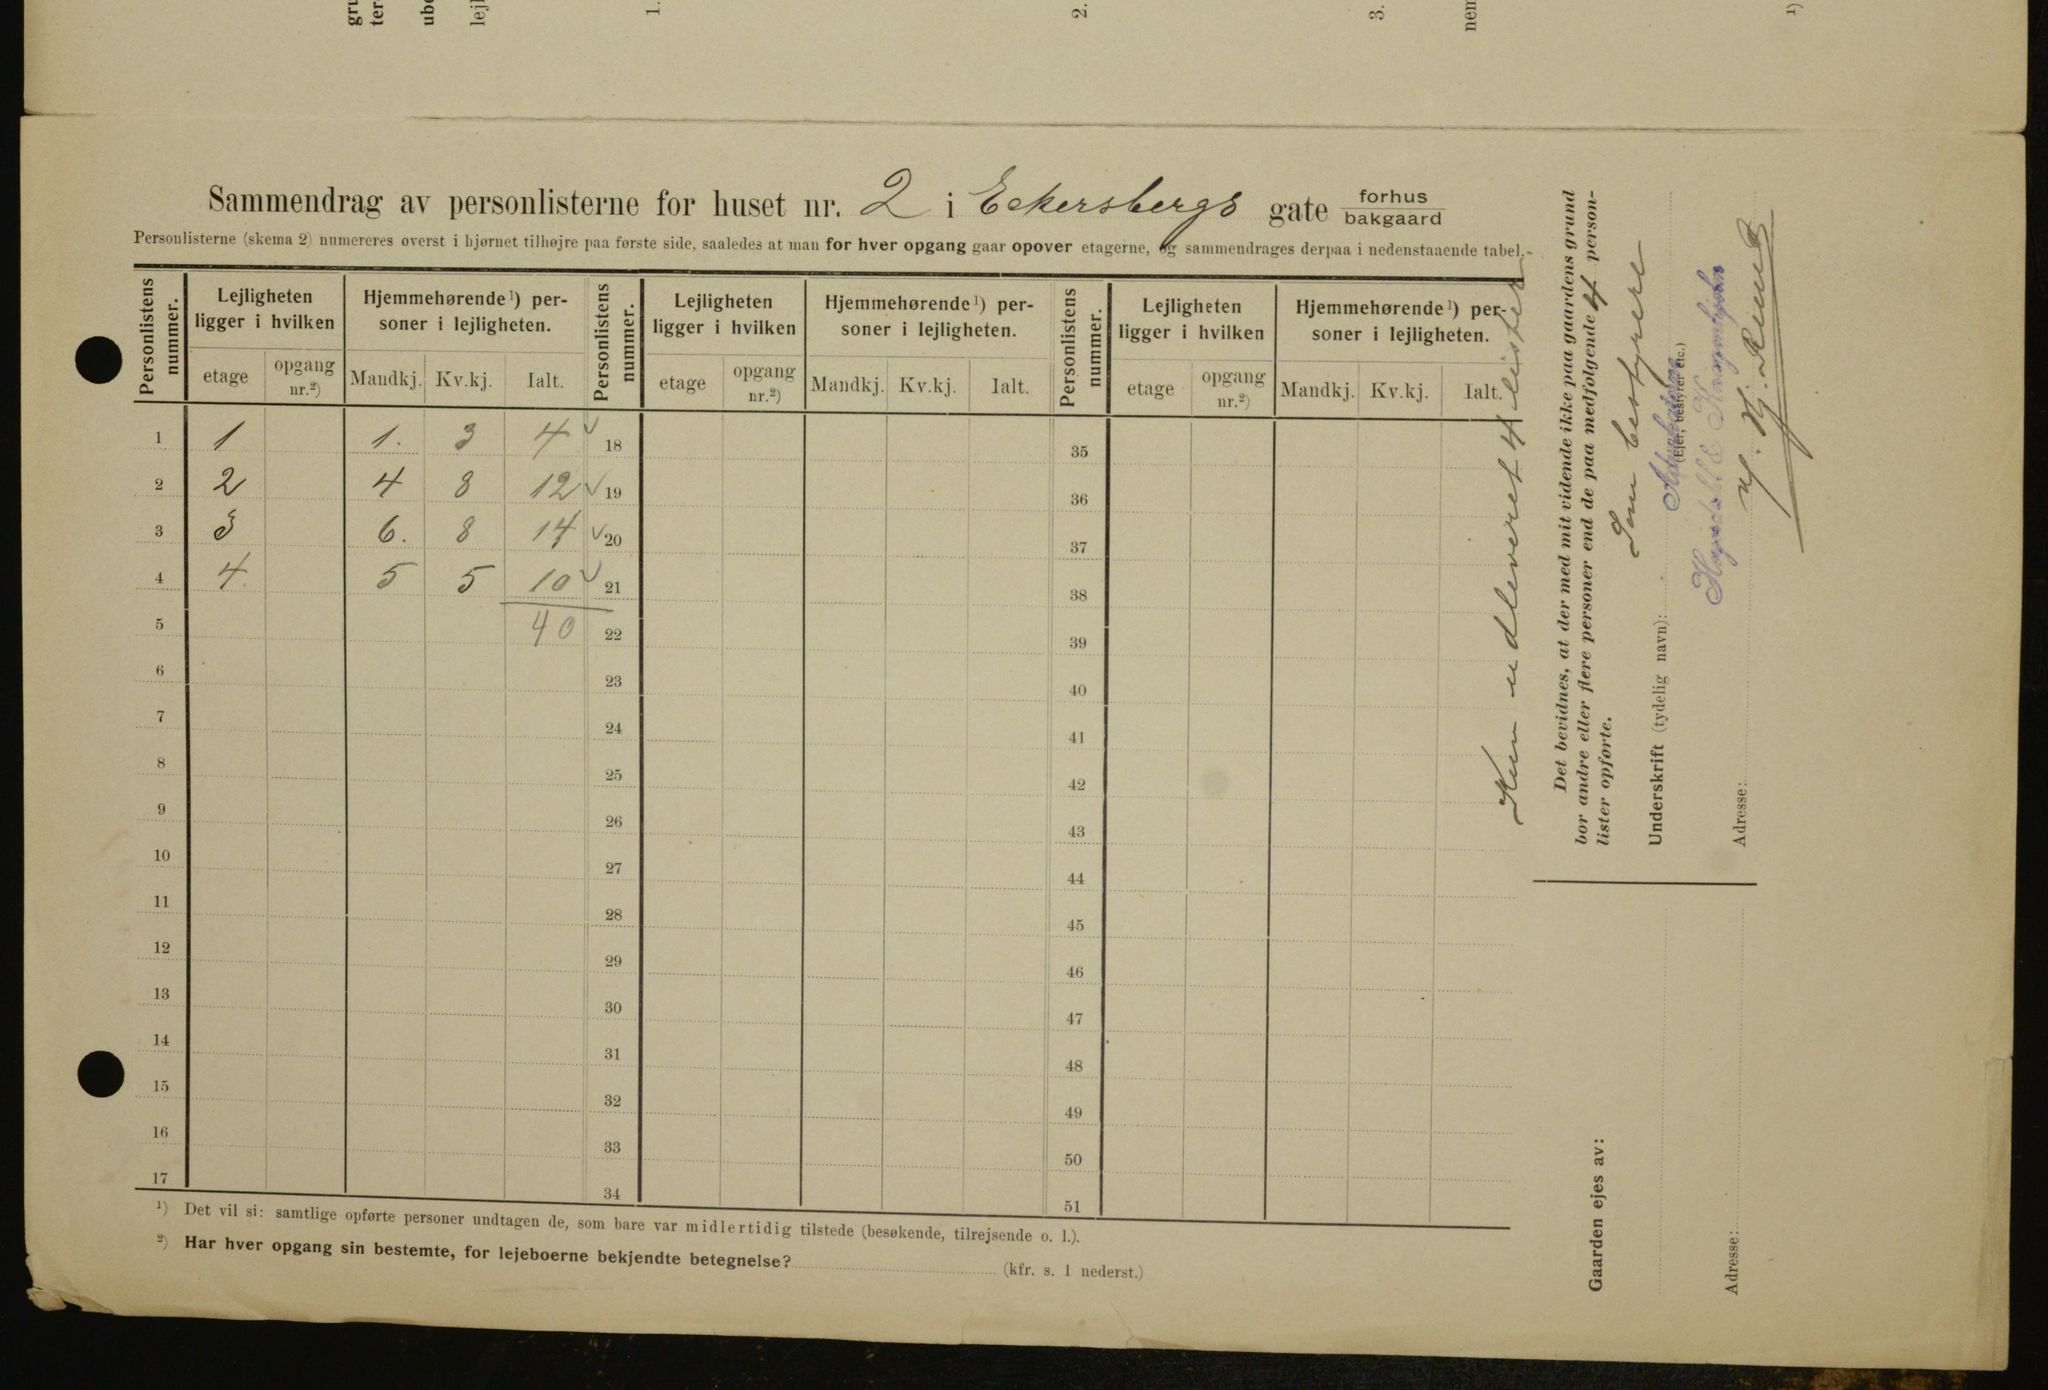 gru
ter
ube
lejl
1.
2.
3.
nem
1)
Sammendrag av personlisterne for huset nr. 2 i Eckersbergs gate forhus
bakgaard
Personlisterne (skema 2) numereres øverst i hjørnet tilhøjre paa første side, saaledes at man for hver opgang gaar opover etagerne, og sammendrages derpaa i nedenstaaende tabel.
Personlistens nummer. Lejligheten ligger i hvilken Hjemmehørende ¹) personer i lejligheten. Personlistens nummer. Lejligheten ligger i hvilken Hjemmehørende ¹) personer i lejligheten. Personlistens nummer. Lejligheten ligger i hvilken Hjemmehørende ¹) personer i lejligheten.
etage opgang nr.²) Mandkj. Kv.kj. Ialt. etage opgang nr.²) Mandkj. Kv.kj. Ialt. etage opgang nr.²) Mandkj. Kv.kj. Ialt.
1 1 1. 3 4 ✓ 18 35
2 2 4 8 12 ✓ 19 36
3 3 6. 8 14 ✓ 20 37
4 4. 5 5 10 ✓ 21 38
5 40 22 39
6 23 40
7 24 41
8 25 42
9 26 43
10 27 44
11 28 45
12 29 46
13 30 47
14 31 48
15 32 49
16 33 50
17 34 51
¹) Det vil si: samtlige opførte personer undtagen de, som bare var midlertidig tilstede (besøkende, tilrejsende o. l.).
²) Har hver opgang sin bestemte, for lejeboerne bekjendte betegnelse? (kfr. s. 1 nederst.)
Kun udleveret 4 lister
Det bevidnes, at der med mit vidende ikke paa gaardens grund
bor andre eller flere personer end de paa medfølgende 4 person-
lister opførte.
Som bestyrere
Underskrift (tydelig navn):
(Ejer, bestyrer etc.)
Adresse:
Gaarden ejes av:
Adresse: